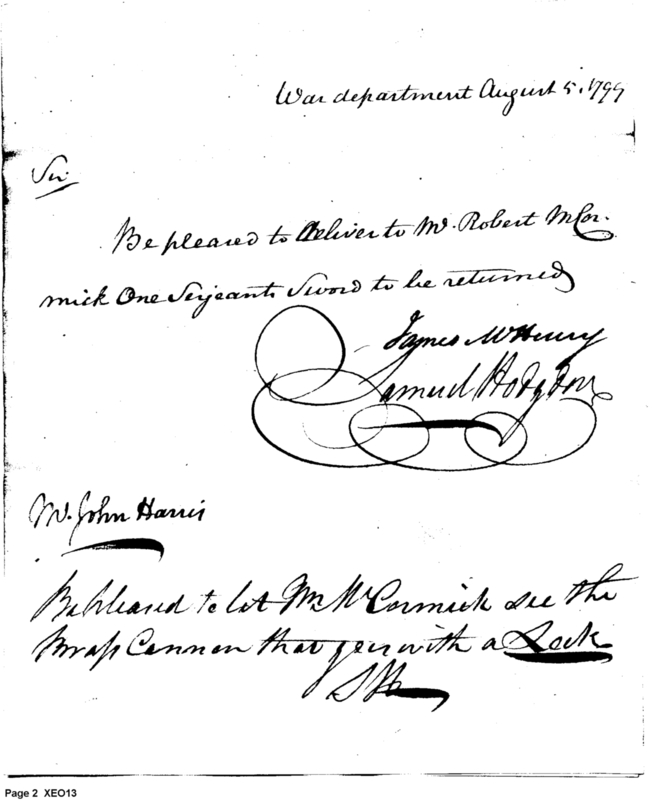 War department August 5. 1799
Sir
Be pleased to deliver to Mr. Robert McCor-
mick One Serjeants Sword to be returned
James McHenry
Samuel Hodgdon
Mr. John Harris
Be pleased to let Mr McCormick see the
Brass Cannon that goes with a Lock
SH
Page 2 XEO13